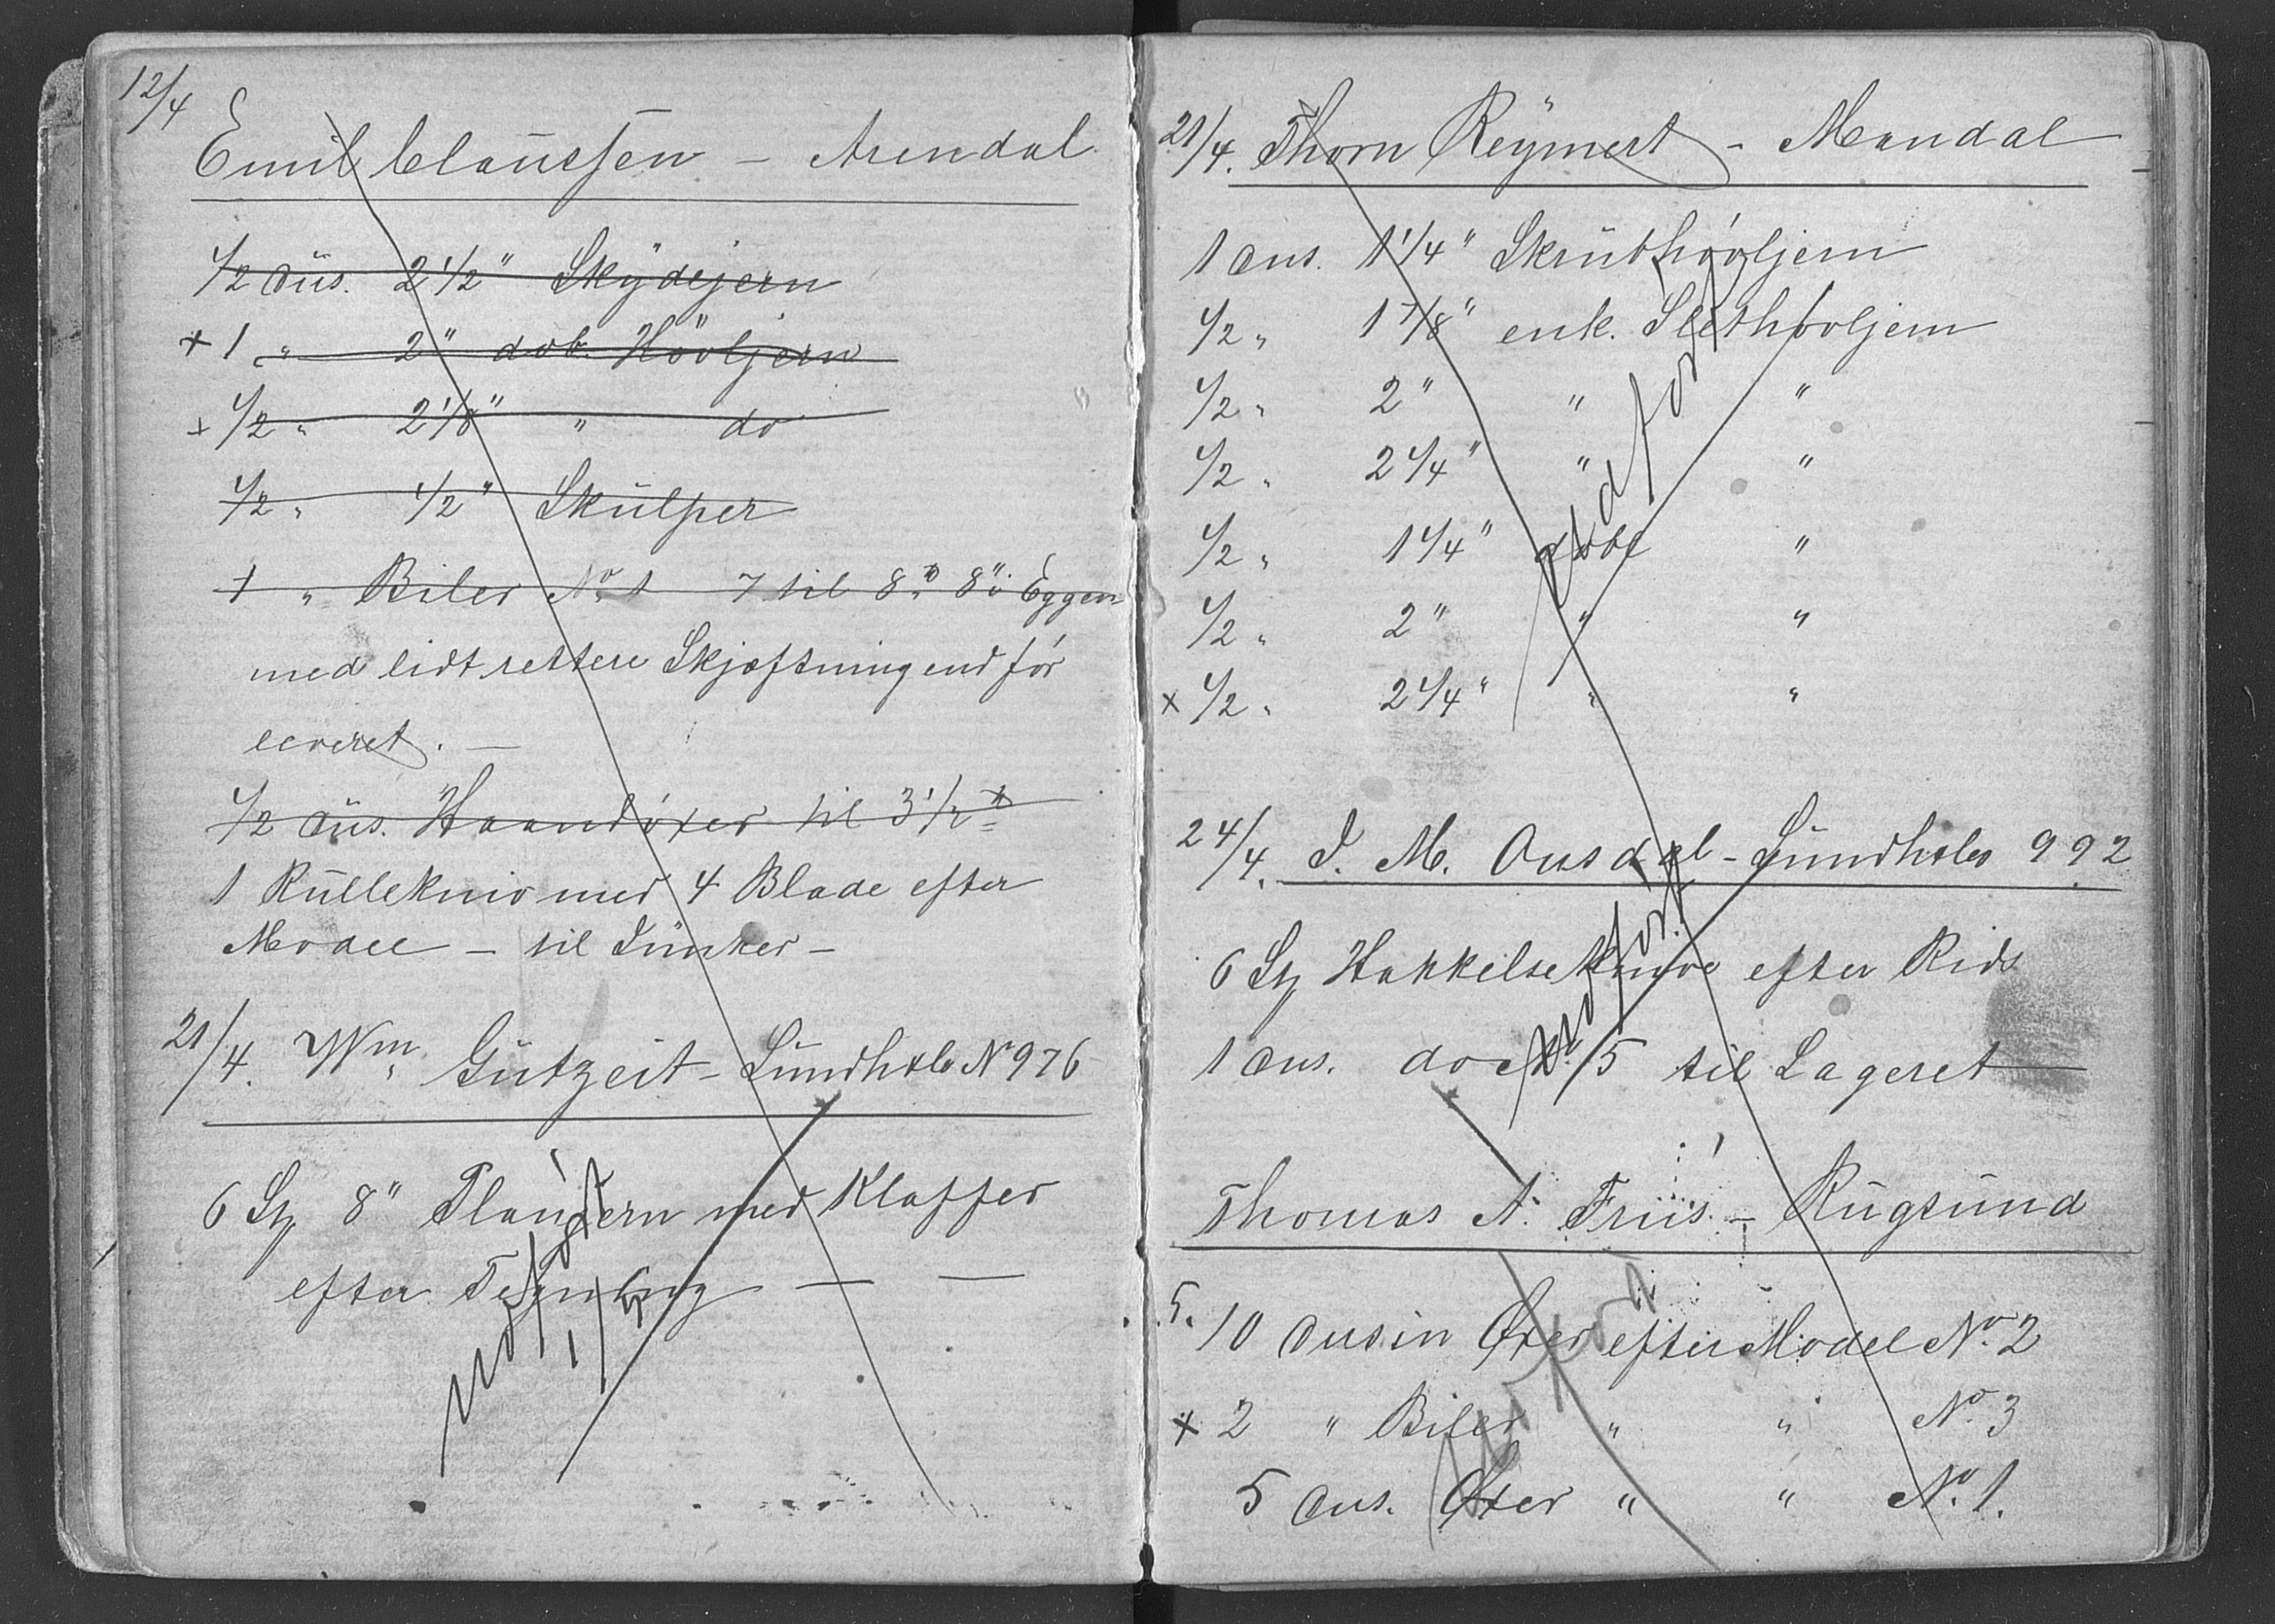 12/4
Emil Claussen – Arendal
1/2 dus. 2 1/2" Skydejern
+ 1 " 2" dob. Hövljern
+ 1/2 " 2 1/8" " do
1/2 " 1/2" Skulper
1 " Biler No 1 7 til 8 " 8" i Eggen
med lidt rettere Skjæftning end før
leveret. —
1/2 dus. Haandøxer til 3 1/2
1 Rullekniv med 4 Blade efter
Model – til Junker –
21/4. Wm Gutzeit – Lundhole No 976
6 St 8" Planjern med Klaffer
efter Tegning — —
udført
1/5
21/4. Thorn Reymert – Mandal
1 dus. 1 1/4" Skrubhøvljern
1/2 " 1 7/8" enk. Sletthøvljern
1/2 " 2" " "
1/2 " 2 1/4" " "
1/2 " 1 1/4" dobl "
1/2 " 2" " "
x 1/2 " 2 1/4" " "
udført
24/4. J. M. Ousdal – Lundholes 992
6 St Hakkelseknive efter Rids
1 dus. do No 15 til Lageret
udført
Thomas A. Friis. – Rugsund
5. 10 dusin Øxer efter Model No 2
x 2 " Biler " " No 3
5 dus. Øxer " " No 1.
udført